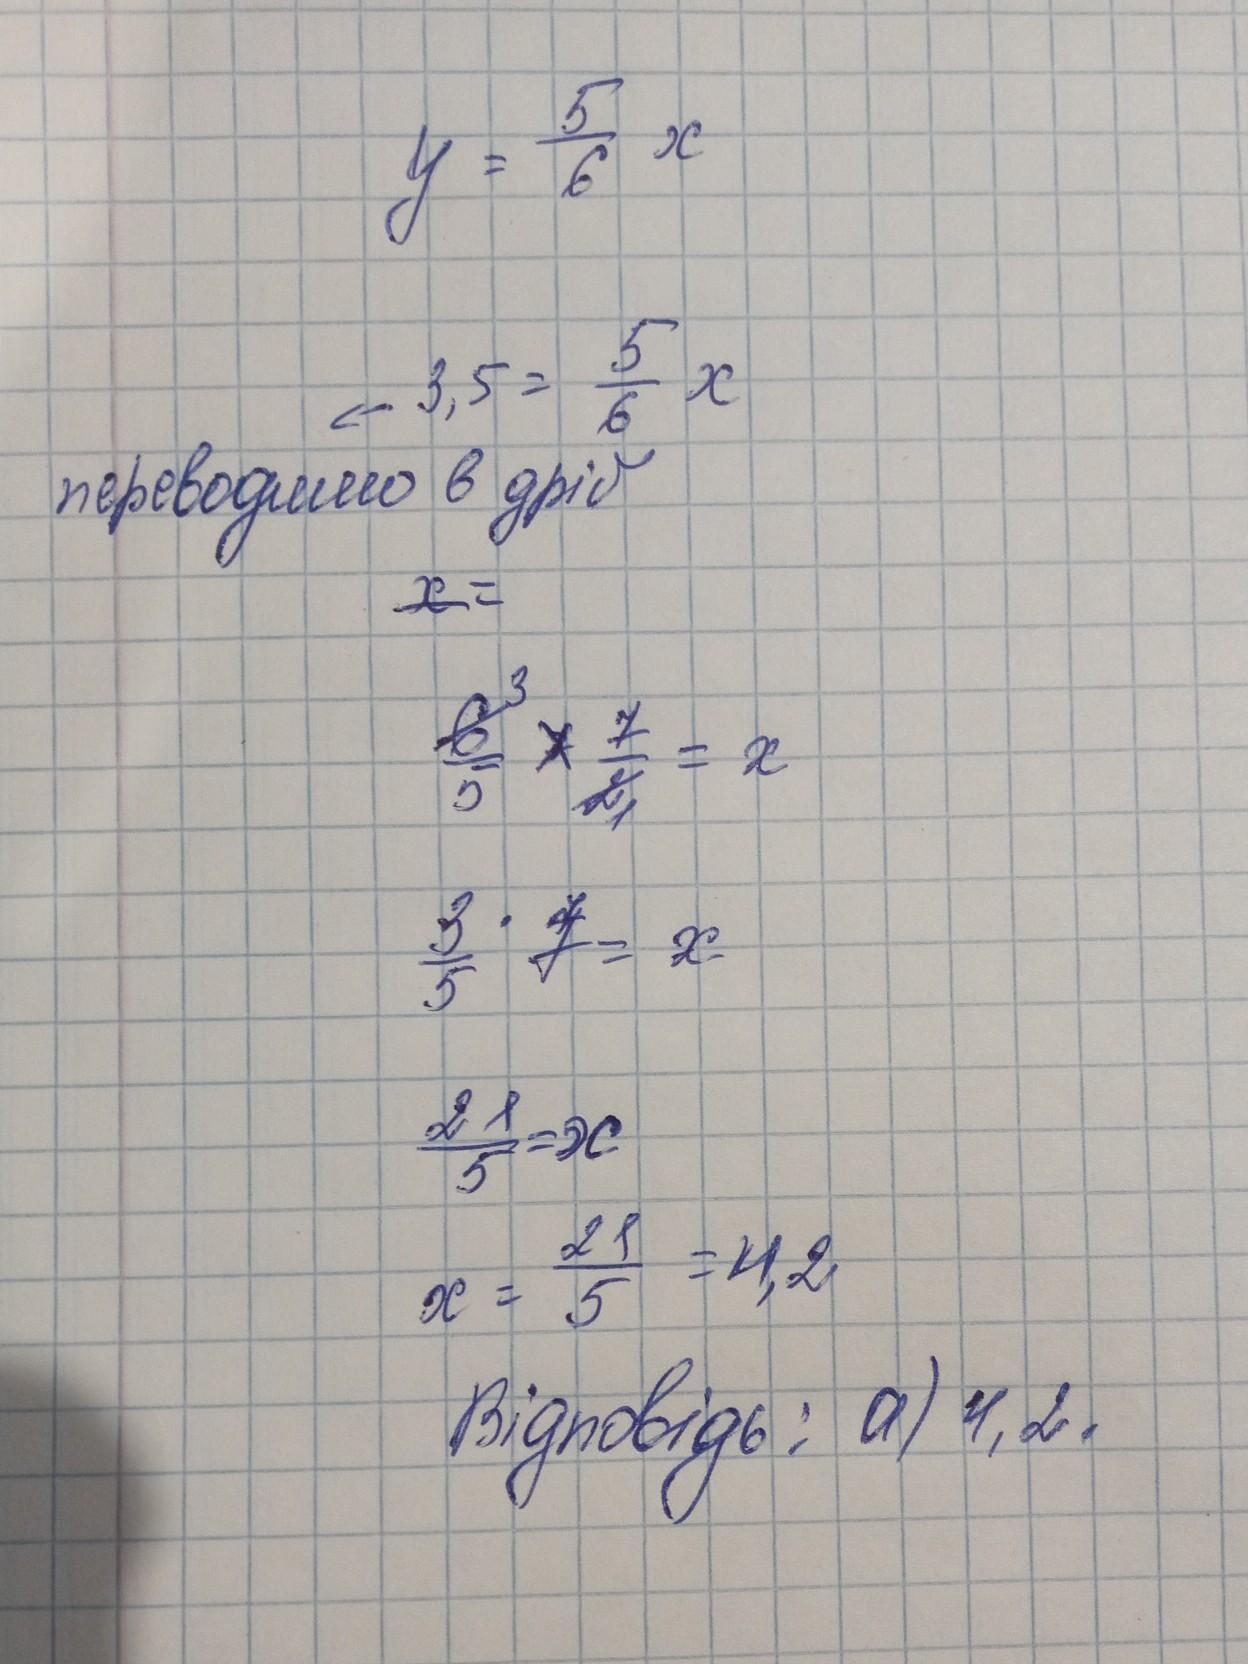 y = 5/6 x
← 3,5 = 5/6 x
переводимо в дріб
x =
6/5 3 × 7/2 1 = x
3/5 · 7 = x
21/5 = x
x = 21/5 = 4,2
Відповідь: а) 4,2.